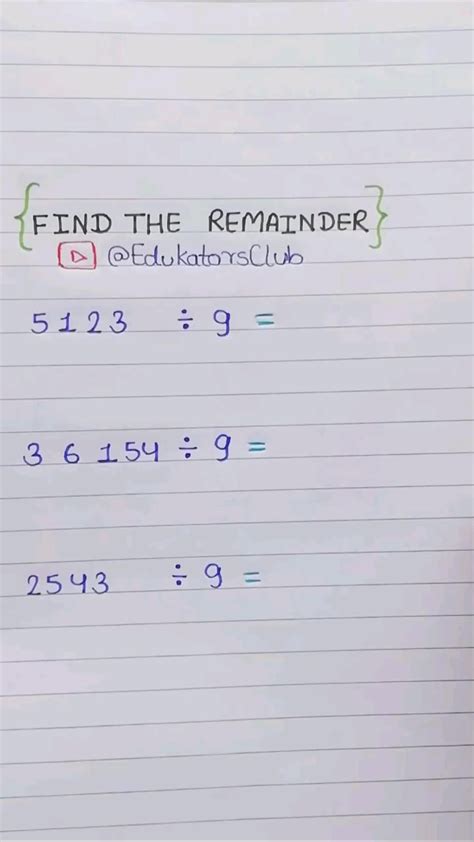 {FIND THE REMAINDER}
@EdukatorsClub
5123 ÷ 9 =
36154 ÷ 9 =
2543 ÷ 9 =